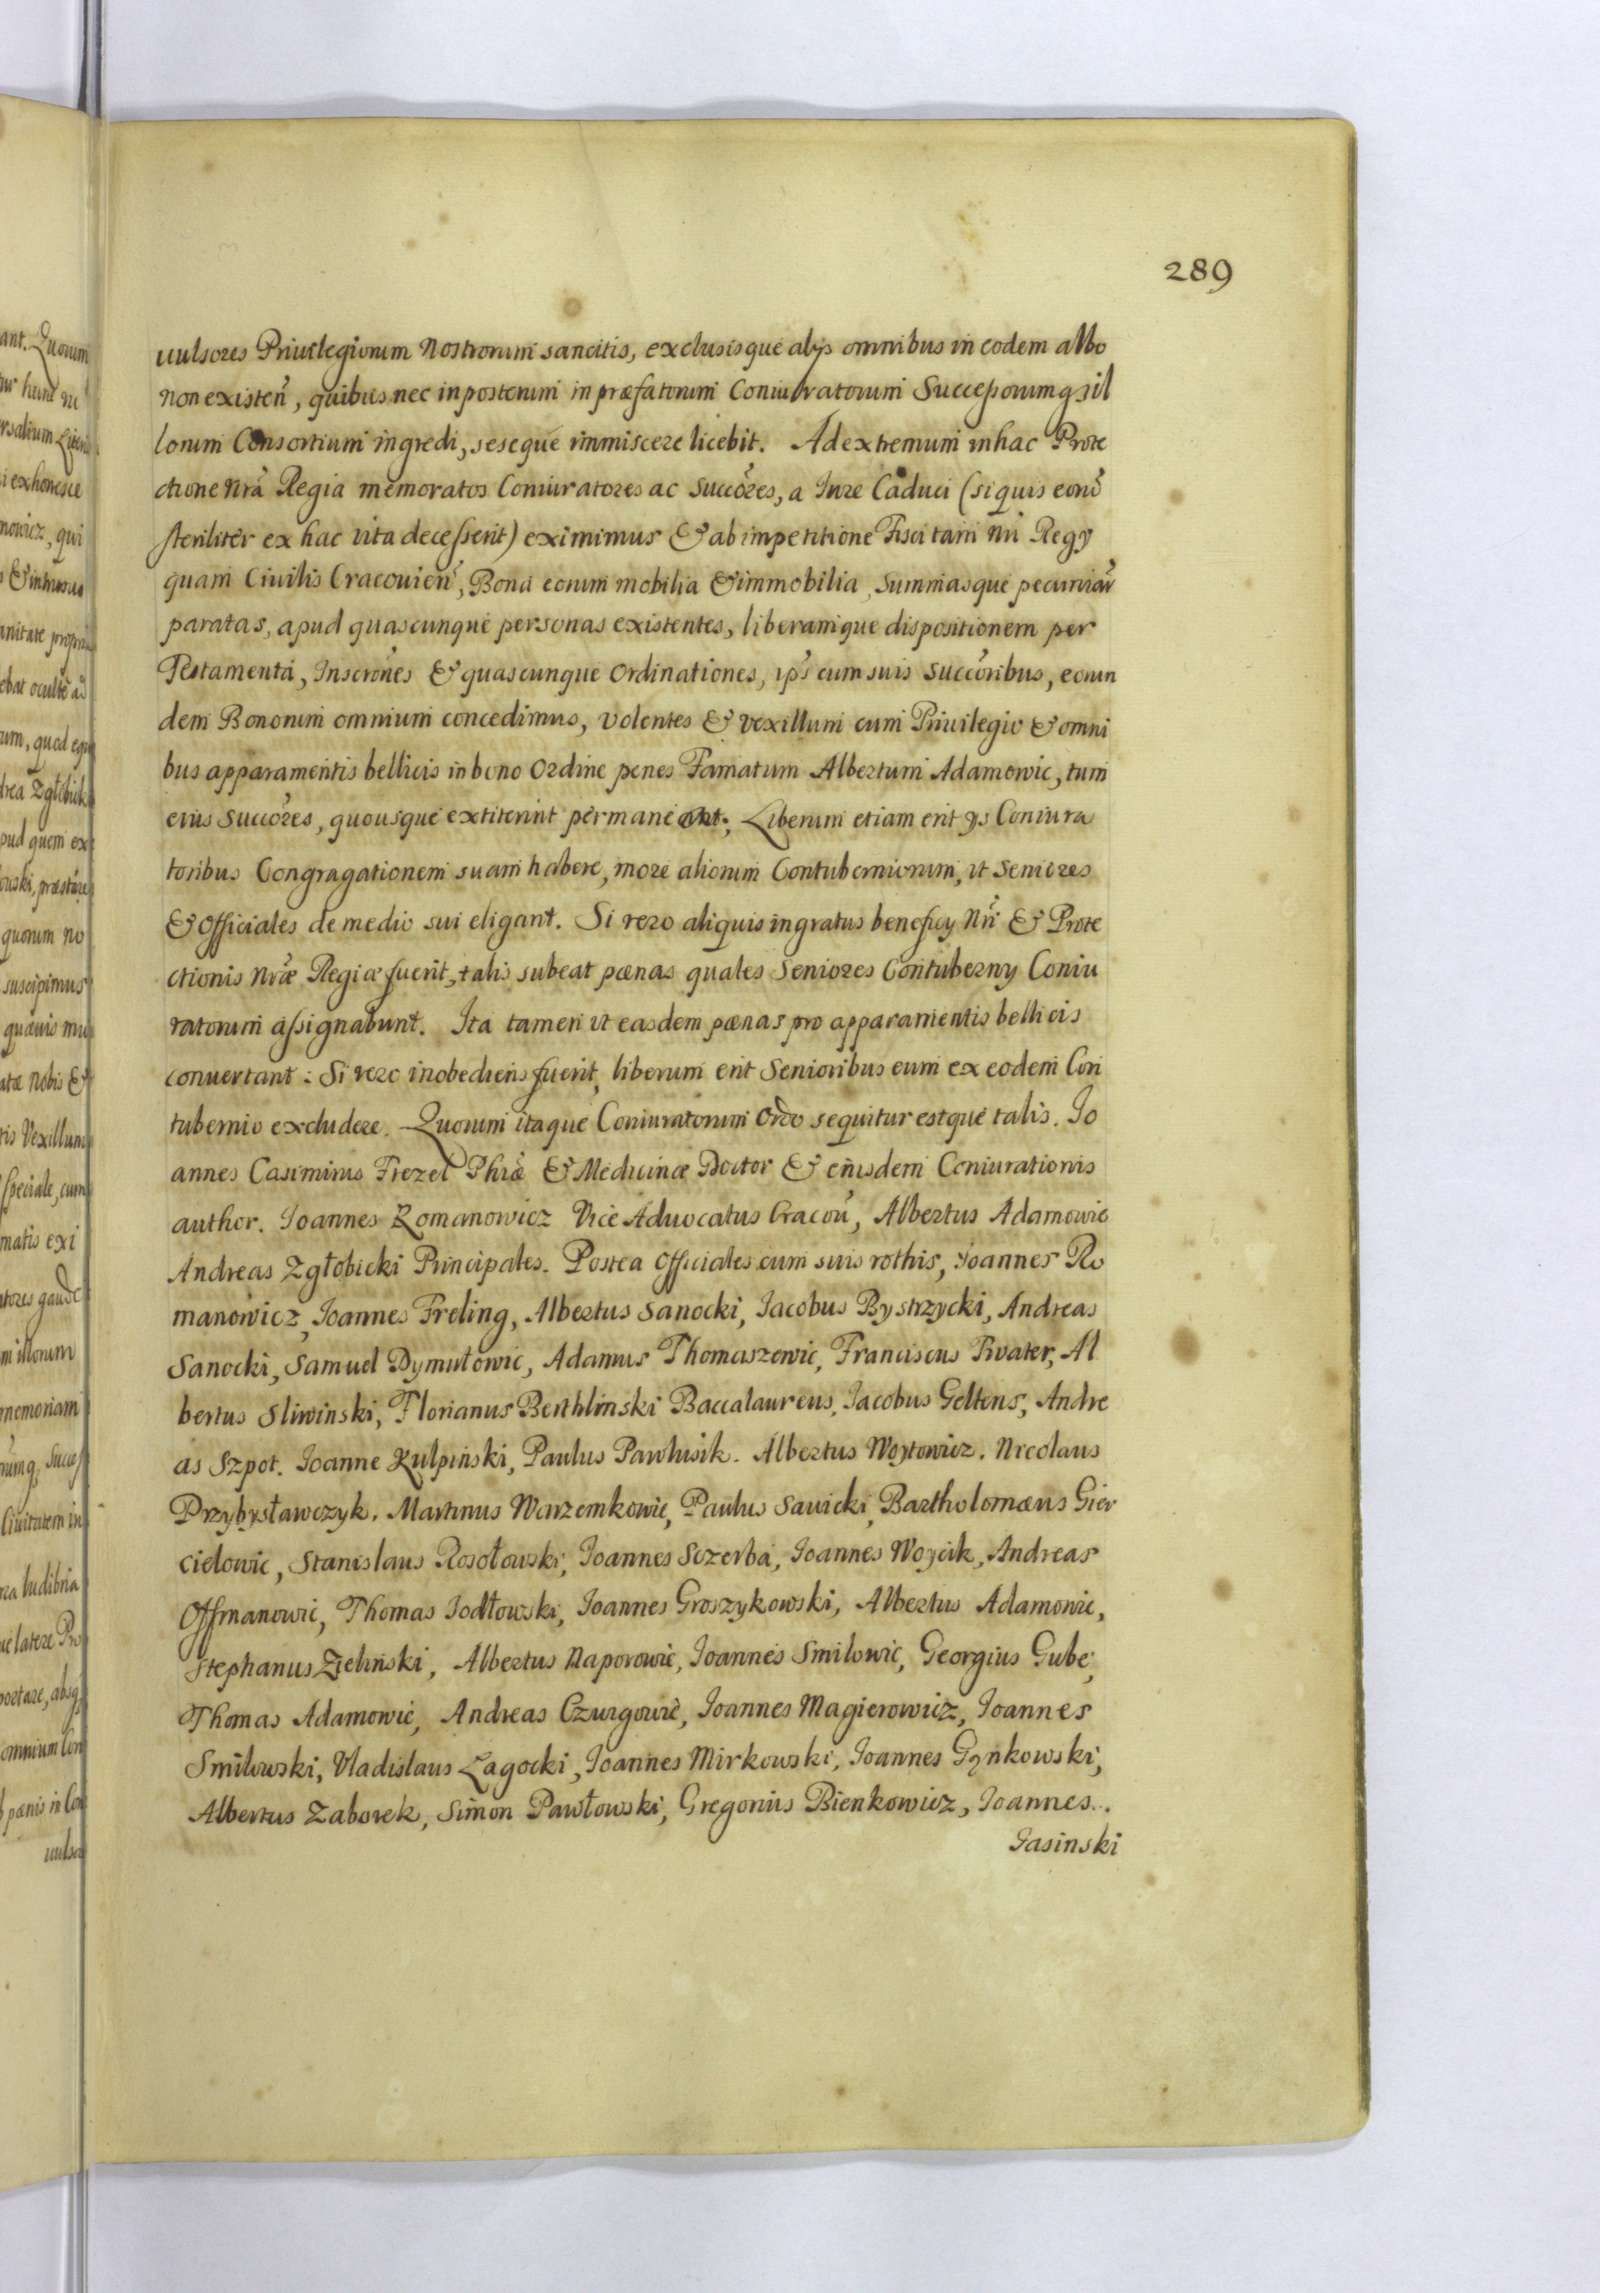 289
uulsores Priuilegiorum Nostrorum sancitis, exclusisque alys omnibus in eodem albo
non existeñ, quibus nec inposterum in præfatorum Coniuratorum Successorumq; il
lorum Consortium ingredi, seseque immiscere licebit. Ad extremum in hac Prote
ctione Nrã Regia memoratos Coniuratores ac Succõres, a Iure Caduci (siquis eorũ
steriliter ex hac vita decesserit) eximimus & ab impetitione Fisci tam Nri Regy
quam Ciuilis Cracouieñ, Bona eorum mobilia & immobilia, Summasque pecuniar̃
paratas, apud quascunque personas existentes, liberamque dispositionem per
Testamenta, Inscrõnes & quascunque Ordinationes, ips̃ cum suis Succõribus, eorun
dem Bonorum omnium concedimus, volentes & vexillum cum Priuilegio & omni
bus apparamentis bellicis in bono Ordine penes Famatum Albertum Adamowic, tum
eius Succõres, quousque extiterint permaneant; Liberum etiam erit ys Coniura
toribus Congragationem suam habere, more aliorum Contuberniorum, ut Seniores
& Officiales de medio sui eligant. Si vero aliquis ingratus beneficy Nrĩ & Prote
ctionis Nræ̃ Regiæ fuerit, talis subeat pænas quales Seniores Contuberny Coniu
ratorum assignabunt. Ita tamen ut easdem pænas pro apparamentis bellicis
conuertant: Si vero inobediens fuerit, liberum erit Senioribus eum ex eodem Con
tubernio excludere. Quorum itaque Coniuratorum Ordo sequitur estque talis. Io
annes Casimirus Frezel Phiæ̃ & Medicinæ Doctor & eiusdem Coniurationis
author. Ioannes Romanowicz Vice Aduocatus Cracoũ, Albertus Adamowic
Andreas Zgłobicki Principales. Postea Officiales cum suis rothis, Ioannes Ro
manowicz, Ioannes Freling, Albertus Sanocki, Iacobus Bystrzycki, Andreas
Sanocki, Samuel Dymutowic, Adamus Thomaszewic, Franciscus Rvater, Al
bertus Sliwinski, Florianus Berthlinski Baccalaureus, Iacobus Geltens, Andre
as Szpot. Ioanne Kulpiński, Paulus Pawlusik. Albertus Woytowicz. Nicolaus
Przybysławczyk. Martinus Warzemkowic, Paulus Sauicki, Bartholomæus Gier
cielowic, Stanislaus Rosołowski, Ioannes Sczerba, Ioannes Woycik, Andreas
Offmanowic, Thomas Iodłowski, Ioannes Groszykowski, Albertus Adamowic,
Stephanus Zieliński, Albertus Naporowic, Ioannes Smilowic, Georgius Gube,
Thomas Adamowic, Andreas Czurgowic, Ioannes Magierowicz, Ioannes
Smilowski, Vladislaus Zagocki, Ioannes Mirkowski, Ioannes Gynkowski,
Albertus Zaborek, Simon Pawłowski, Gregorius Bienkowicz, Ioannes..
Iasinski